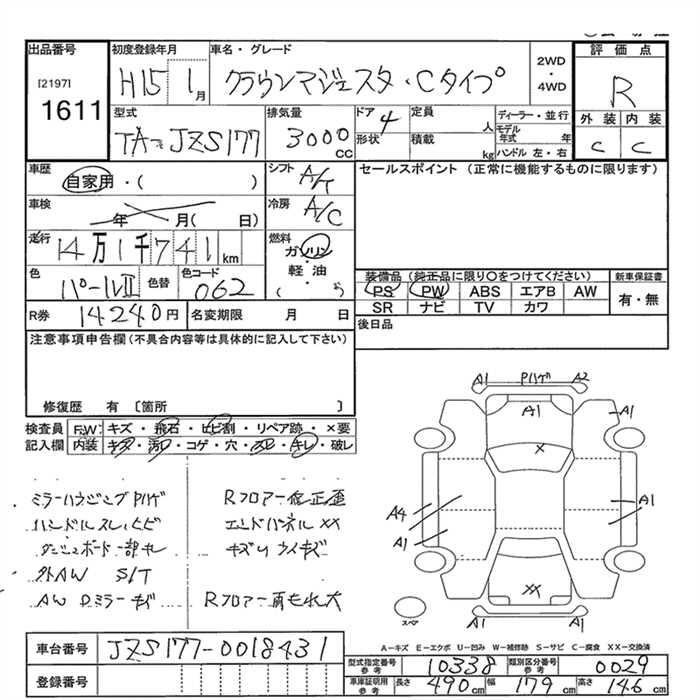 出品番号 初度登録年月 車名・グレード 2WD・4WD 評価点
[2197] H15 1月 クラウンマジェスタ・Cタイプ R
1611
型式 排気量 ドア 4 定員 人 ディーラー・並行 外装 内装
TA-JZS177 3000cc 形状 積載 kg モデル年式 年 ハンドル 左・右 C C
車歴 自家用・( ) シフト A/T セールスポイント (正常に機能するものに限ります)
車検 年 月( 日) 冷房 A/C
走行 14万1千741km 燃料 ガソリン・軽油 ( )
色 パールII 色替 色コード 062 装備品 (純正品に限り〇をつけてください) 新車保証書
PS PW ABS エアB AW 有・無
SR ナビ TV カワ
R券 14240円 名変期限 月 日 後日品
注意事項申告欄(不具合内容等は具体的に記入して下さい)
修復歴 有 〔箇所 〕
検査員 F.W: キズ・飛石・ヒビ割・リペア跡・×要
記入欄 内装 キズ・汚レ・コゲ・穴・スレ・キレ・破レ
ミラーハウジングPハゲ Rフロアー修正歪
ハンドルスレ、ヒビ エンドパネルXX
ダッシュボード一部キレ キズ
外AW S/T
AW Dミラーキズ Rフロアー
A1 Pハゲ A2
A1 A1
×
A4 A1
A1
XX
スペア A1 A1
A-キズ E-エクボ U-凹み W-補修跡 S-サビ C-腐食 XX-交換済
車台番号 JZS177-0018431
型式指定番号 参考 10338 類別区分番号 参考 0029
登録番号
車庫証明用 参考 長さ 490cm 幅 179cm 高さ 146cm